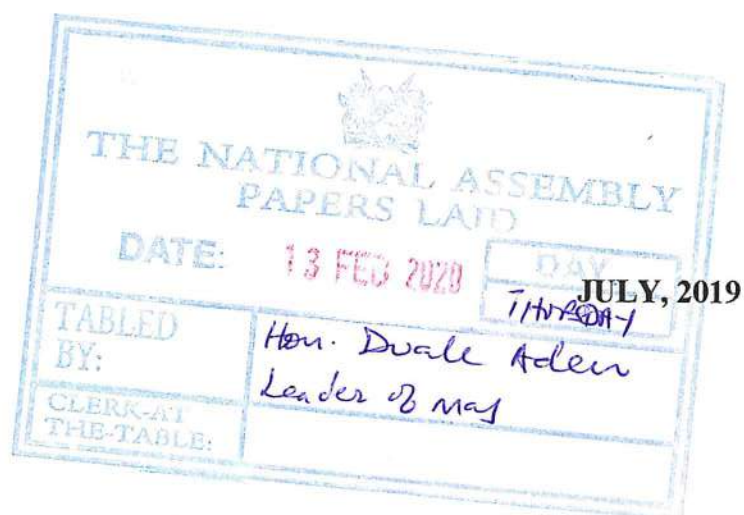 THE NATIONAL ASSEMBLY
PAPERS LAID
DATE: 13 FEB 2020 DAY
THURSDAY
JULY, 2019
TABLED
BY:
Hon. Duale Aden
Leader of Maj
CLERK-AT
THE-TABLE: